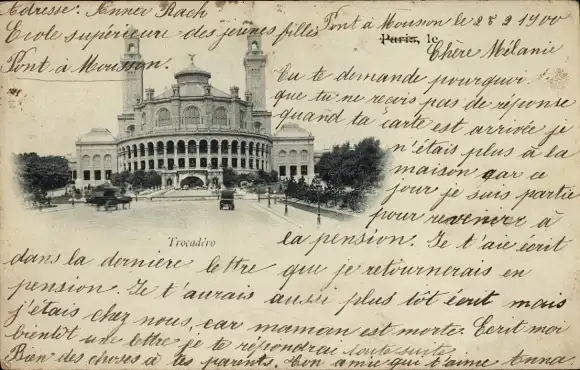 Adresse. Annea Rach
École supérieure des jeunes filles
Pont à Mousson.
Pont à Mousson le 28 2 1900
Paris, le
Chère Mélanie
Tu te demande pourquoi
que tu ne reçois pas de réponse
quand ta carte est arrivée je
n'étais plus à la
maison car ce
jour je suis partie
pour revenir à
la pension. Je t'aie écrit
Trocadéro
dans la dernière lettre que je retournerais en
pension. Je t'aurais aussi plus tôt écrit mais
j'étais chez nous, car maman est morte. Ecrit moi
bientôt une lettre je te répondrai toute suite
Bien des choses à tes parents. Ton amie qui t'aime Anna